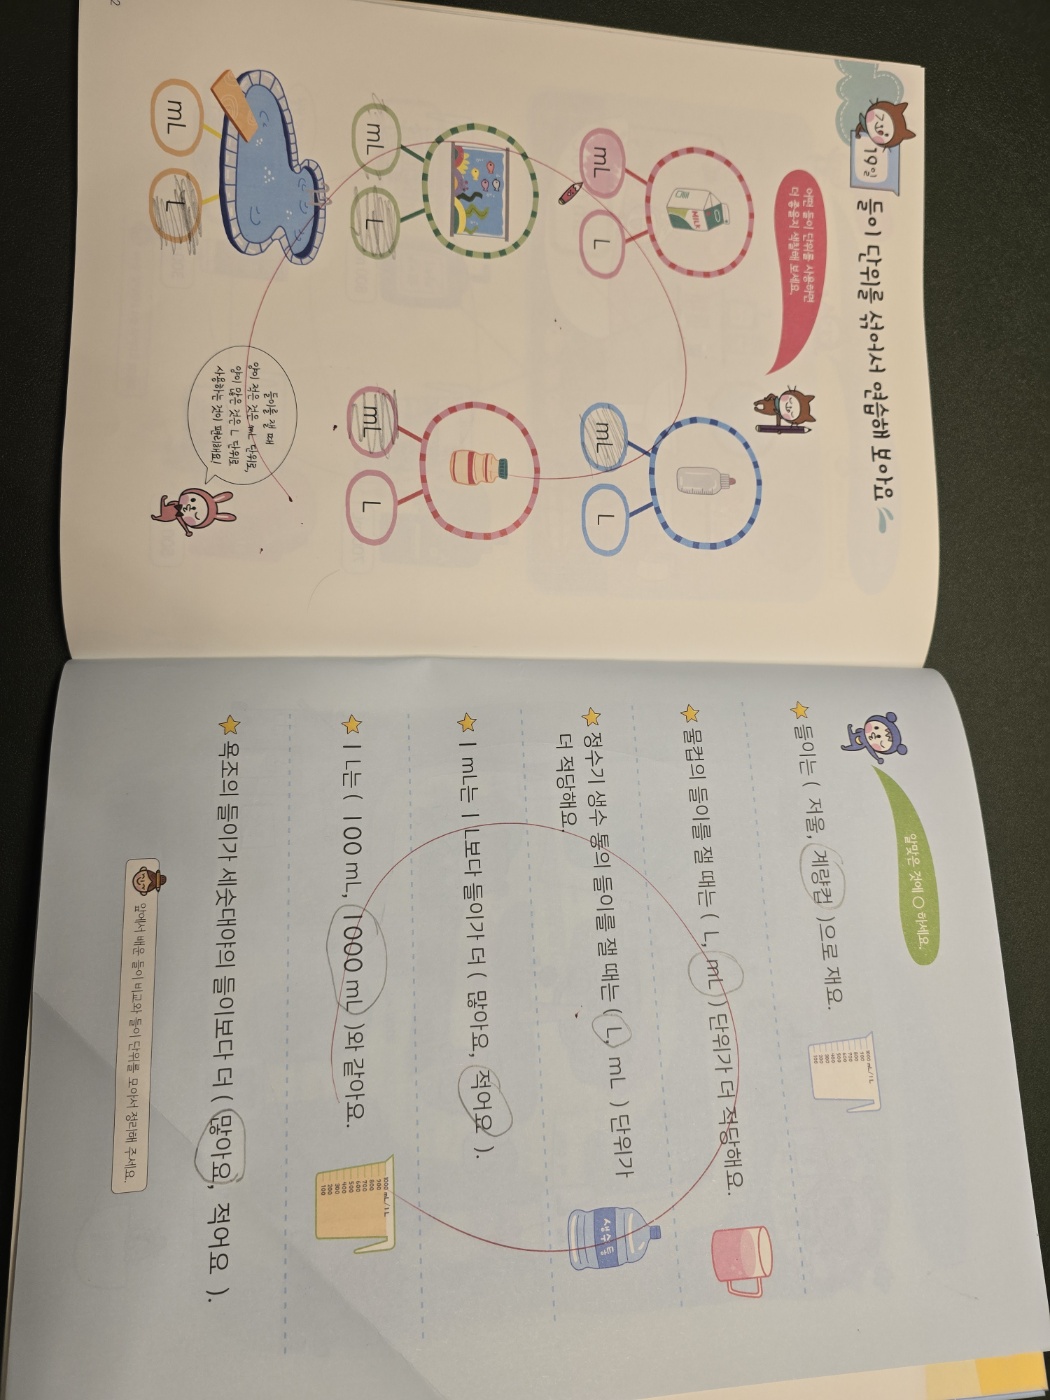 19일
들이 단위를 섞어서 연습해 보아요
어떤 들이 단위를 사용하면
더 좋을지 생각해 보세요.
MILK
mL
L
mL
L
mL
L
mL
L
mL
L
들이를 잴 때
양이 적은 것은 mL 단위로,
양이 많은 것은 L 단위로
사용하는 것이 편리해요!
2
알맞은 것에 ○ 하세요.
★ 들이는 ( 저울, 계량컵 )으로 재요.
★ 물컵의 들이를 잴 때는 ( L, mL ) 단위가 더 적당해요.
★ 정수기 생수 통의 들이를 잴 때는 ( L, mL ) 단위가
더 적당해요.
생수통
★ 1 mL는 1 L보다 들이가 더 ( 많아요, 적어요 ).
★ 1 L는 ( 100 mL, 1000 mL )와 같아요.
★ 욕조의 들이가 세숫대야의 들이보다 더 ( 많아요, 적어요 ).
앞에서 배운 들이 비교와 들이 단위를 모아서 정리해 주세요.